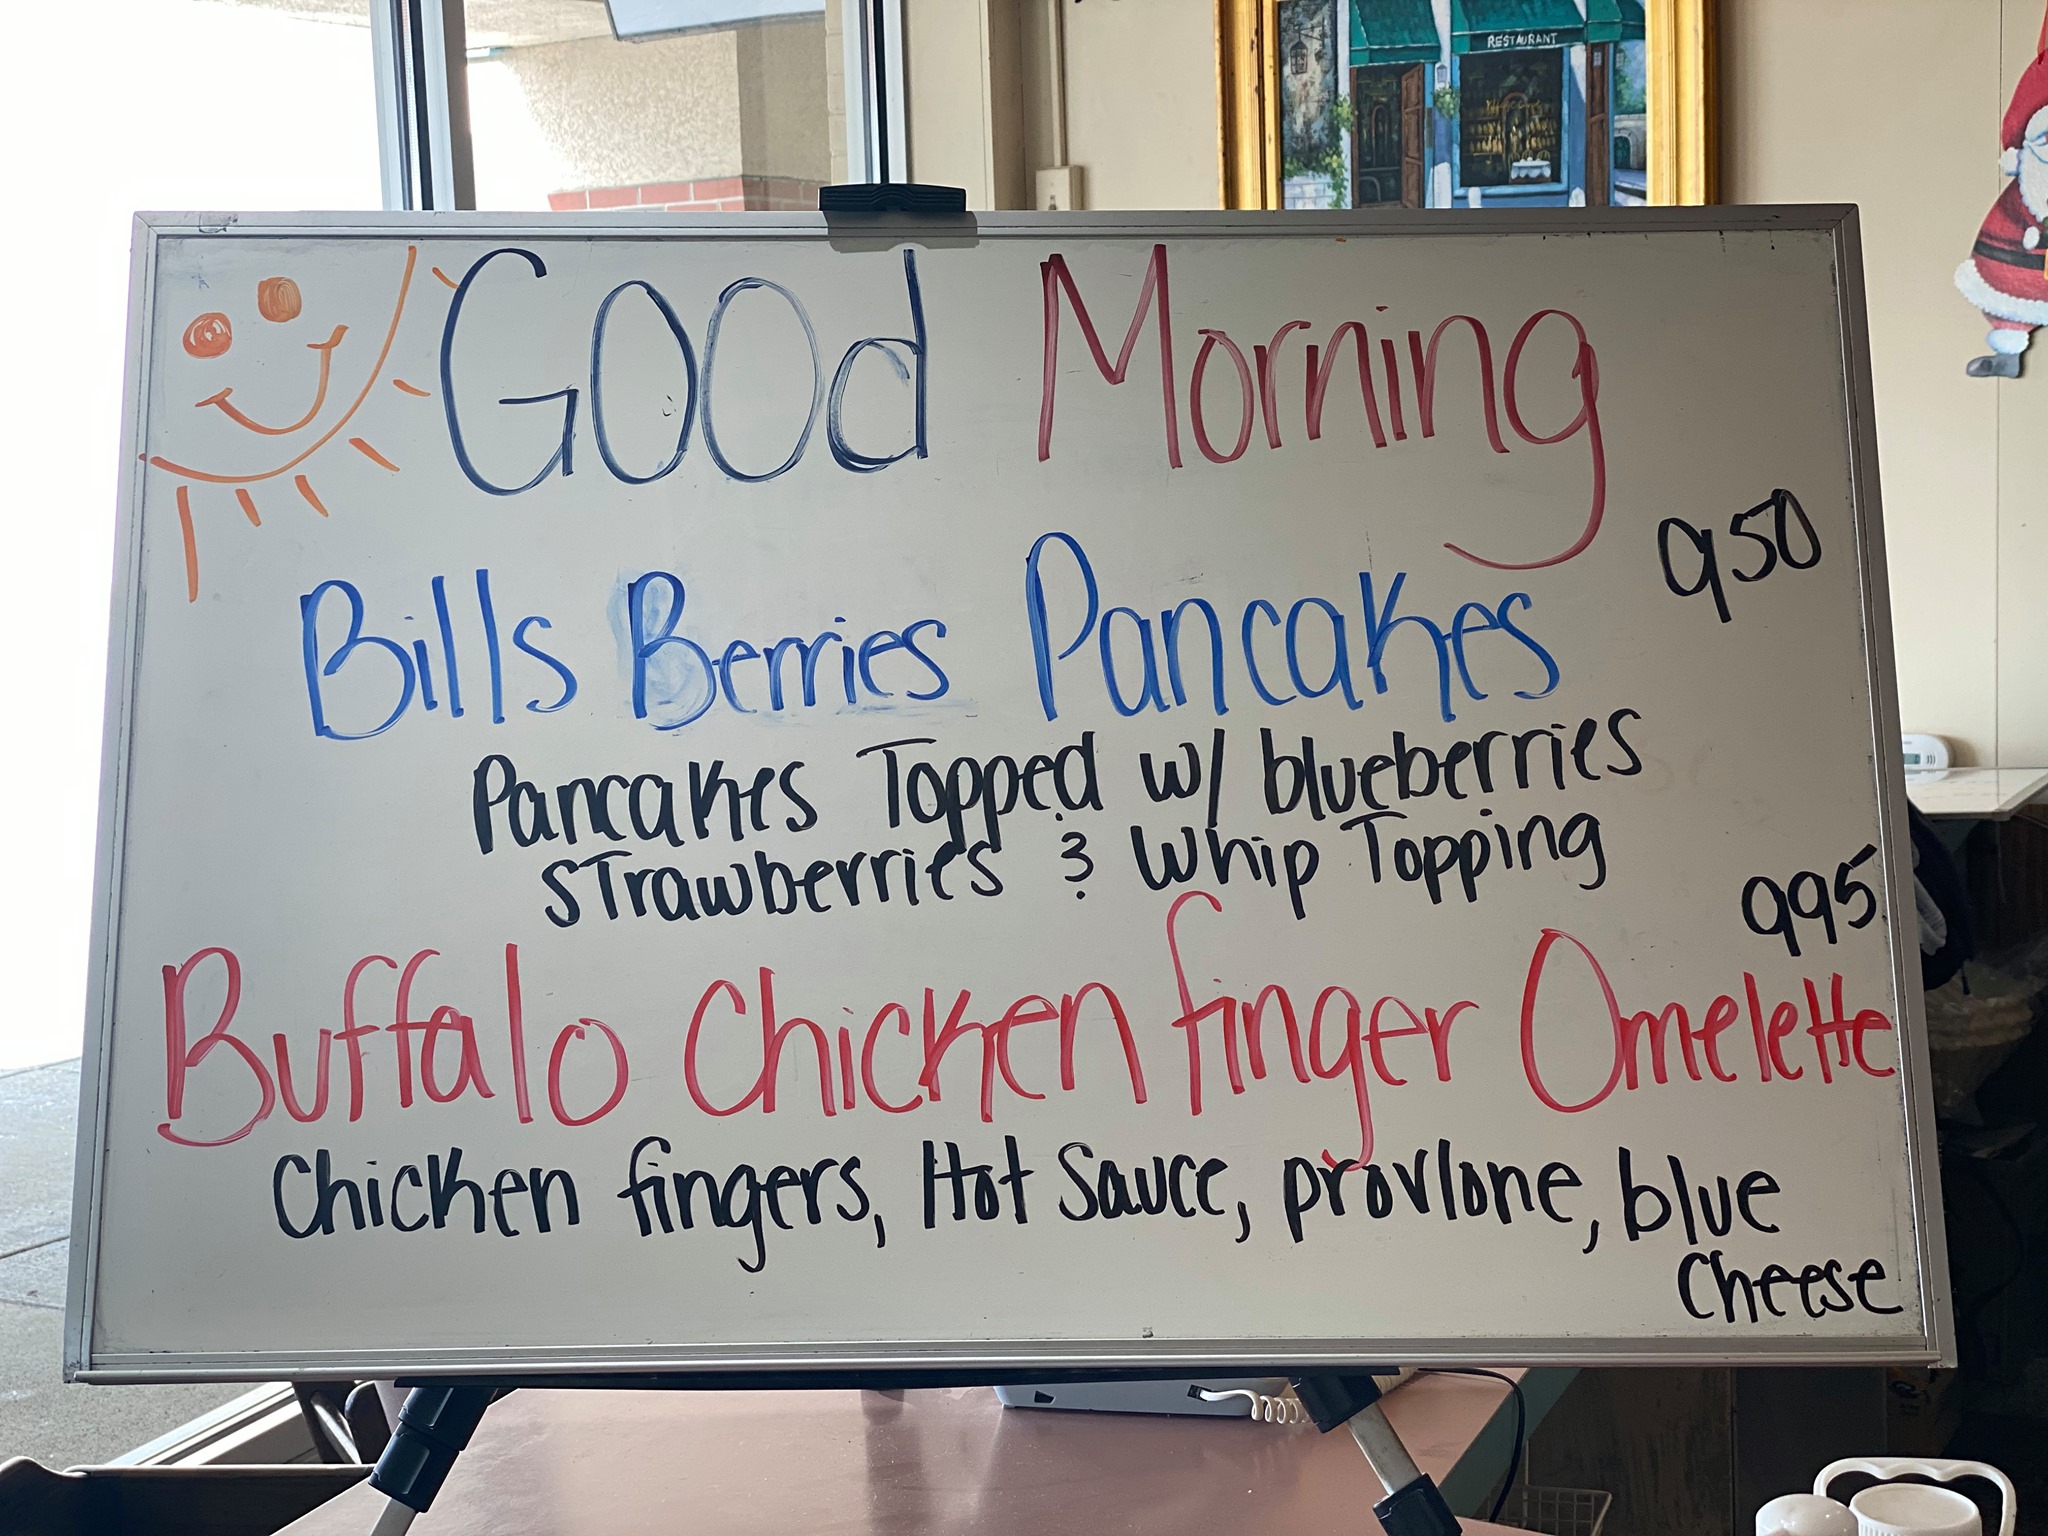 RESTAURANT
Good Morning
950
Bills Berries Pancakes
Pancakes Topped w/ blueberries
strawberries & Whip Topping
995
Buffalo Chicken finger Omelette
Chicken fingers, Hot Sauce, provlone, blue
Cheese